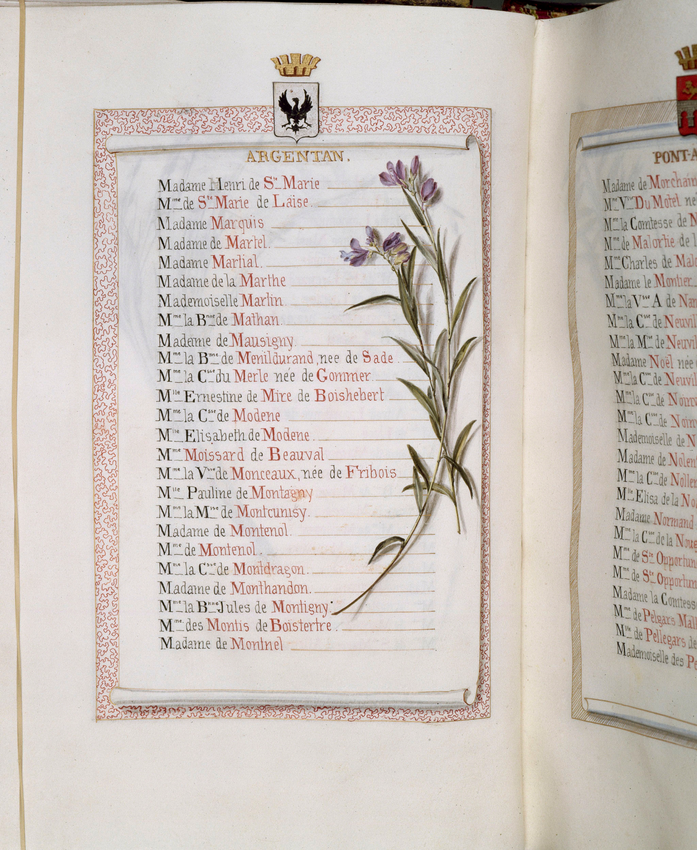 ARGENTAN.
Madame Henri de Ste Marie
Mme de Ste Marie de Laise
Madame Marquis
Madame de Martel
Madame Martial
Madame de la Marthe
Mademoiselle Martin
Mme la Bnne de Mathan
Madame de Mausigny
Mme la Bnne de Menildurand, née de Sade
Mme la Ctsse du Merle née de Gommer
Mlle Ernestine de Mire de Boishebert
Mme la Ctsse de Modene
Mlle Elisabeth de Modene
Mme Moissard de Beauval
Mme la Vtsse de Monceaux, née de Fribois
Mlle Pauline de Montagny
Mme la Mise de Montcunisy
Madame de Montenol
Mme de Montenol
Mme la Ctsse de Montdragon
Madame de Monthandon
Mme la Bnne Jules de Montigny
Mme des Montis de Boistertre
Madame de Montnel
PONT-A
Madame de Morchain
Mme Vve Du Motel né
Mme la Comtesse de
Mme de Malortie de l
Mme Charles de Malo
Madame le Montier
Mme la Vtsse A de Na
Mme la Ctsse de Neuvil
Mme la Mise de Neuvil
Madame Noël née
Mme la Ctsse de Neuvi
Mme la Ctsse de Noinv
Mme la Ctsse de Noinv
Mademoiselle de N
Madame de Nolent
Mme la Ctsse de Nollen
Mlle Elisa de la No
Madame Normand
Mme la Ctsse de la Noue
Mme de Ste Opportun
Mme de Ste Opportun
Madame la Comtesse
Mme de Pelgars Mall
Mlle de Pellegars de
Mademoiselle des P